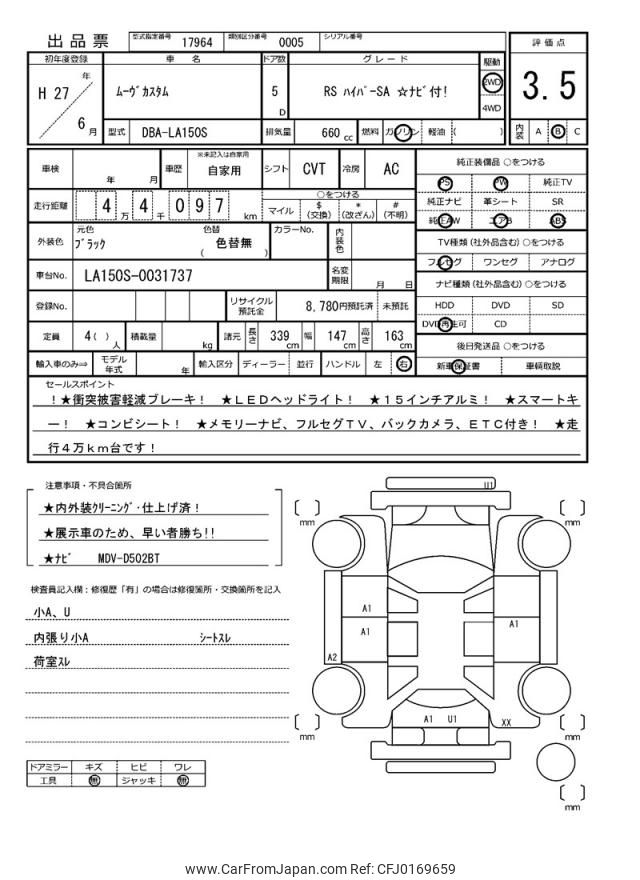 出品票
型式指定番号 17964 類別区分番号 0005 シリアル番号
初年度登録 車名 ドア数 グレード 駆動 評価点
H 27 年 6 月
ﾑｰｳﾞｶｽﾀﾑ 5 D RS ﾊｲﾊﾟｰSA ☆ﾅﾋﾞ付! 2WD 4WD
3.5
型式 DBA-LA150S 排気量 660 cc 燃料 ガソリン 軽油 ( ) 内装 A B C
車検 年 月 車歴 ※未記入は自家用 自家用 シフト CVT 冷房 AC
純正装備品 ○をつける
PS PW 純正TV
純正ナビ 革シート SR
純正AW エアB ABS
走行距離 4 万 4 千 0 9 7 km
○をつける
マイル $ (交換) * (改ざん) # (不明)
外装色 元色 ブラック 色替 ( 色替無 ) カラーNo. 内装色
TV種類 (社外品含む) ○をつける
フルセグ ワンセグ アナログ
車台No. LA150S-0031737 名変期限 月 日
ナビ種類 (社外品含む) ○をつける
HDD DVD SD
DVD再生可 CD
登録No. リサイクル預託金 8,780円預託済 未預託
定員 4( ) 人 積載量 kg 諸元 長さ 339 cm 幅 147 cm 高さ 163 cm
後日発送品 ○をつける
新車保証書 車輌取説
輸入車のみ⇒ モデル年式 年 輸入区分 ディーラー 並行 ハンドル 左 右
セールスポイント
！★衝突被害軽減ブレーキ！ ★ＬＥＤヘッドライト！ ★１５インチアルミ！ ★スマートキ
ー！ ★コンビシート！ ★メモリーナビ、フルセグＴＶ、バックカメラ、ＥＴＣ付き！ ★走
行４万ｋｍ台です！
注意事項・不具合箇所
★内外装ｸﾘｰﾆﾝｸﾞ･仕上げ済！
★展示車のため、早い者勝ち!!
★ﾅﾋﾞ MDV-D502BT
検査員記入欄：修復歴「有」の場合は修復箇所・交換箇所を記入
小A、U
内張り小A ｼｰﾄｽﾚ
荷室ｽﾚ
ドアミラー キズ ヒビ ワレ
工具 無 ジャッキ 無
U1
mm mm
A1 A1 A1
A2
A1 U1 XX
mm mm
mm
www.CarFromJapan.com Ref: CFJ0169659